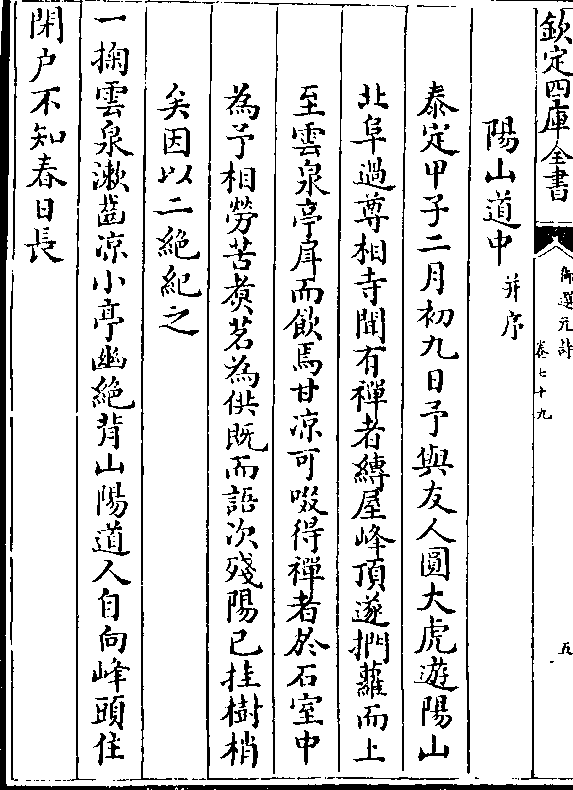 欽定四庫全書
御選元詩
卷七十九
五
陽山道中 并序
泰定甲子二月初九日予與友人圓大虎遊陽山
北阜過尊相寺聞有禪者縛屋峰頂遂捫蘿而上
至雲泉亭㪺而飲焉甘凉可啜得禪者於石室中
為予相勞苦煑茗為供既而語次殘陽已挂樹梢
矣因以二絶紀之
一掬雲泉漱齒凉小亭幽絶背山陽道人自向峰頭住
閉户不知春日長